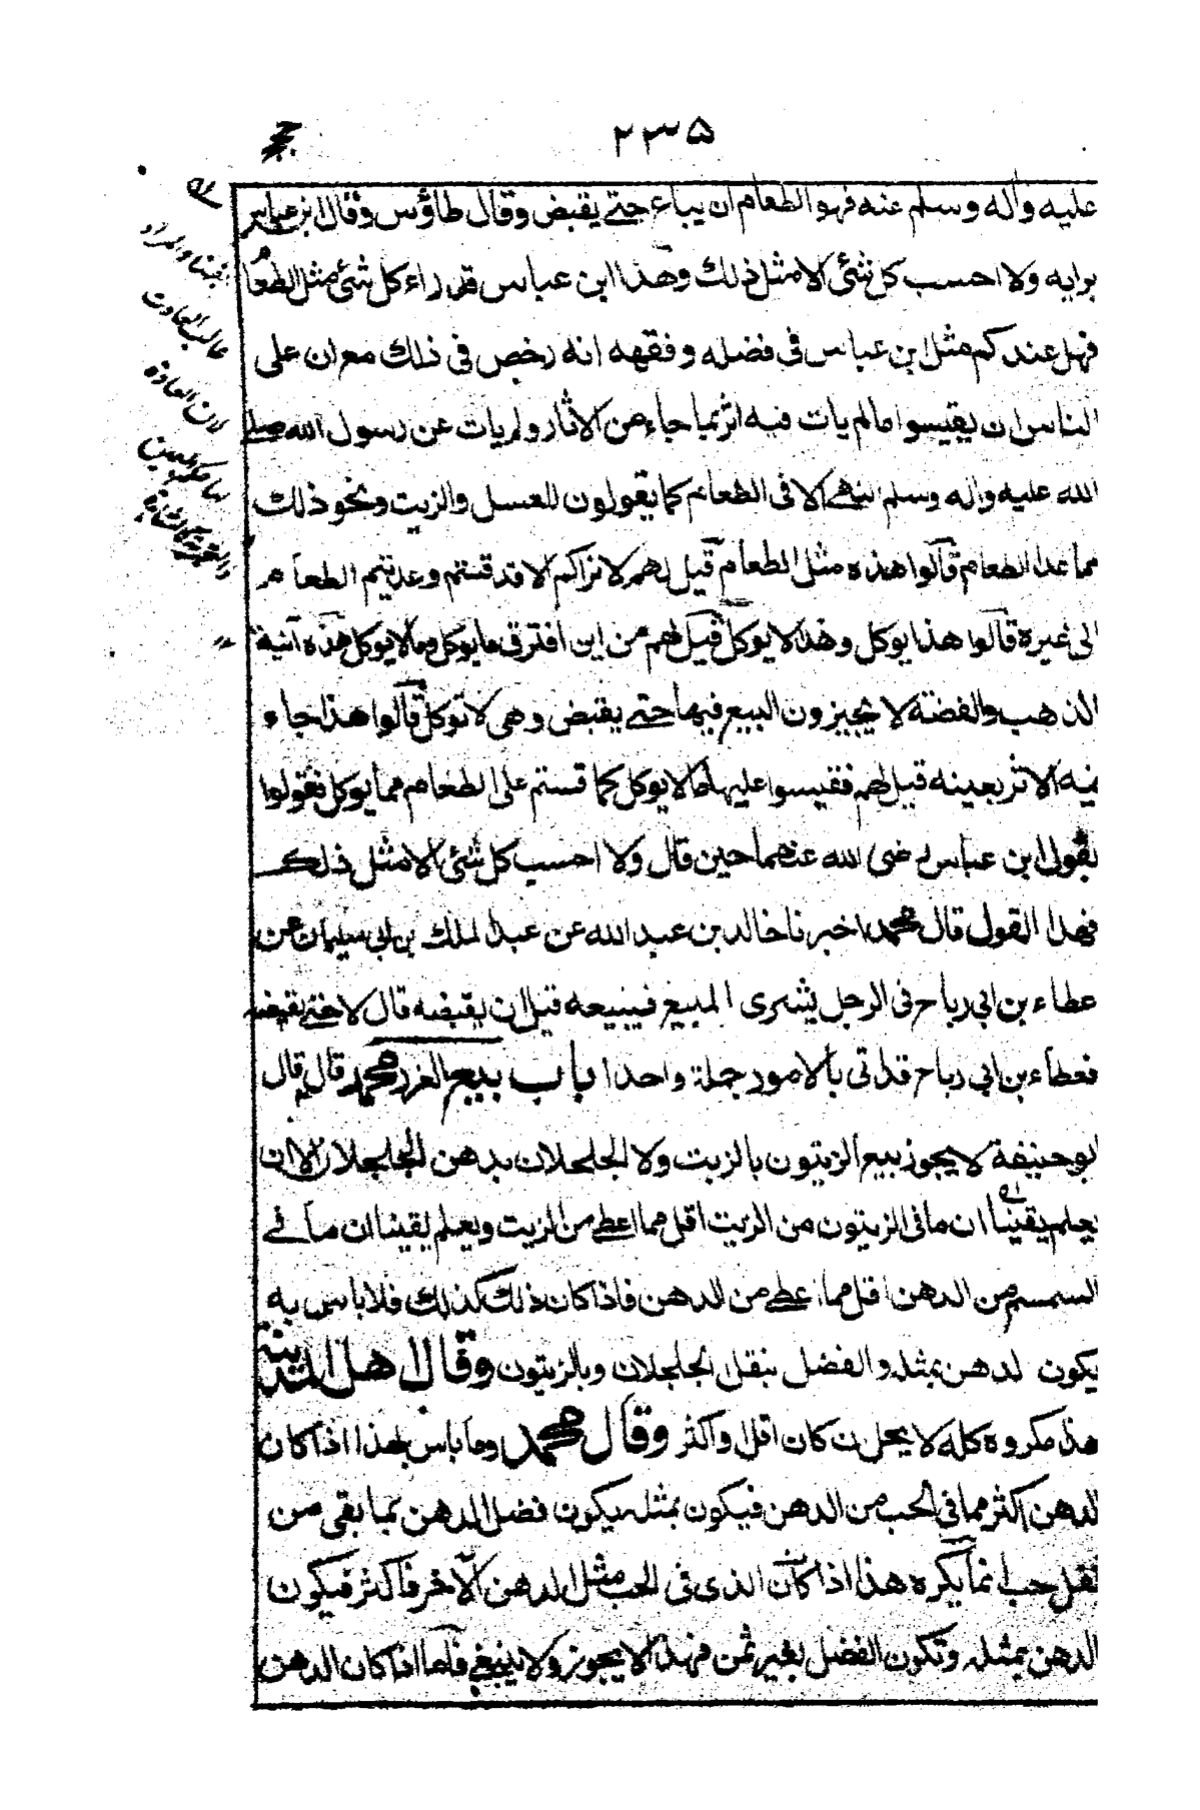 ۲۳۵
عليه واٰله وسلم عنه فهو الطعام ان يباع حتے يقبض وقال طاؤس وقال ابن عباس
برايه ولا احسب كل شئ الا مثل ذلك وهذا ابن عباس قد راء كل شئ مثل الطعام
فهل عندكم مثل ابن عباس فى فضله وفقهه انه رخص فى ذلك مع ان على
الناس ان يقيسوا ما لم يات فيه اثر بما جاء من الاثار ولم يات عن رسول الله صلے
الله عليه واٰله وسلم النهے الا فى الطعام كما يقولون للعسل والزيت ونحو ذلك
مما عدا الطعام قالوا هذه مثل الطعام قيل لهم لا نراكم الا قد قستم وعديتم الطعام
الى غيره قالوا هذا يوكل وهذا لا يوكل قيل لهم من اين افترق ما يوكل وما لا يوكل هذه اٰنية
الذهب والفضة لا يجيزون البيع فيها حتے يقبض وهى لا توكل قالوا هذا جاء
فيه الاثر بعينه قيل لهم فقيسوا عليها ما لا يوكل كما قستم على الطعام مما يوكل فقولوا
بقول ابن عباس رضى الله عنهما حين قال ولا احسب كل شئ الا مثل ذلك
فهذا القول قال محمد اخبرنا خالد بن عبد الله عن عبد الملك بن ابى سليمان عن
عطاء بن ابى رباح فى الرجل يشترى المبيع فيبيعه قبل ان يقبضه قال لا حتے يقبضه
فعطاء بن ابى رباح قد اتى بالامور جملة واحدا باب بيع الغرر محمد قال قال
ابو حنيفة لا يجوز بيع الزيتون بالزيت ولا الجلجلان بدهن الجلجلان الا ان
يعلم يقينا ان ما فى الزيتون من الزيت اقل مما اعطے من الزيت ويعلم يقينا ان ما فے
السمسم من الدهن اقل مما اعطے من الدهن فاذا كان ذلك كذلك فلا باس به
يكون الدهن بمثله والفضل بثقل الجلجلان وبالزيتون وقال اهل المدينة
هذا مكروه كله لا يحل ان كان اقل او اكثر وقال محمد وما باس بهذا اذا كان
الدهن اكثر مما فى الحب من الدهن فيكون بمثله يكون فضل الدهن بما بقى من
ثقل حب انما يكره هذا اذا كان الذى فى الحب مثل الدهن الاٰخر فاكثر فيكون
الدهن بمثله وتكون الفضل بغير ثمن فهذا لا يجوز ولا ينبغے فاما اذا كان الدهن